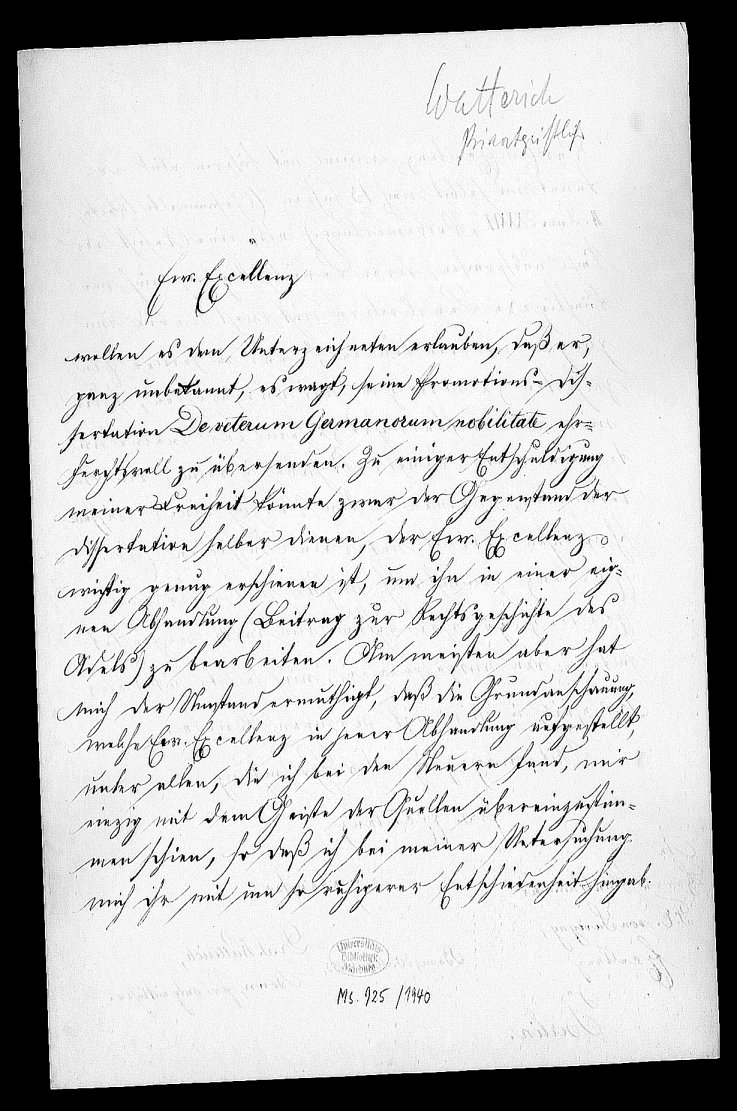 Watterich
Privatgeistlicher
Ew. Excellenz
wollen es dem Unterzeichneten erlauben, daß er,
ganz unbekannt, es wagt, seine Promotions-Dis-
sertation De veterum Germanorum nobilitate ehr-
furchtsvoll zu übersenden. Zu einiger Entschuldigung
meiner Freiheit könnte zwar der Gegenstand der
Dissertation selber dienen, der Ew. Excellenz
wichtig genug erschienen ist, um ihn in einer eig-
nen Abhandlung (Beitrag zur Rechtsgeschichte des
Adels) zu bearbeiten. Am meisten aber hat
mich der Umstand ermuthigt, daß die Grundanschauung,
welche Ew. Excellenz in jener Abhandlung aufgestellt,
unter allen, die ich bei den Neuern fand, mir
einzig mit dem Geiste der Quellen übereinzustim-
men schien, so daß ich bei meiner Untersuchung
mich ihr mit um so ruhigerer Entschiedenheit hingab.
Universitäts
Bibliothek
Marburg
Ms. 925/1940